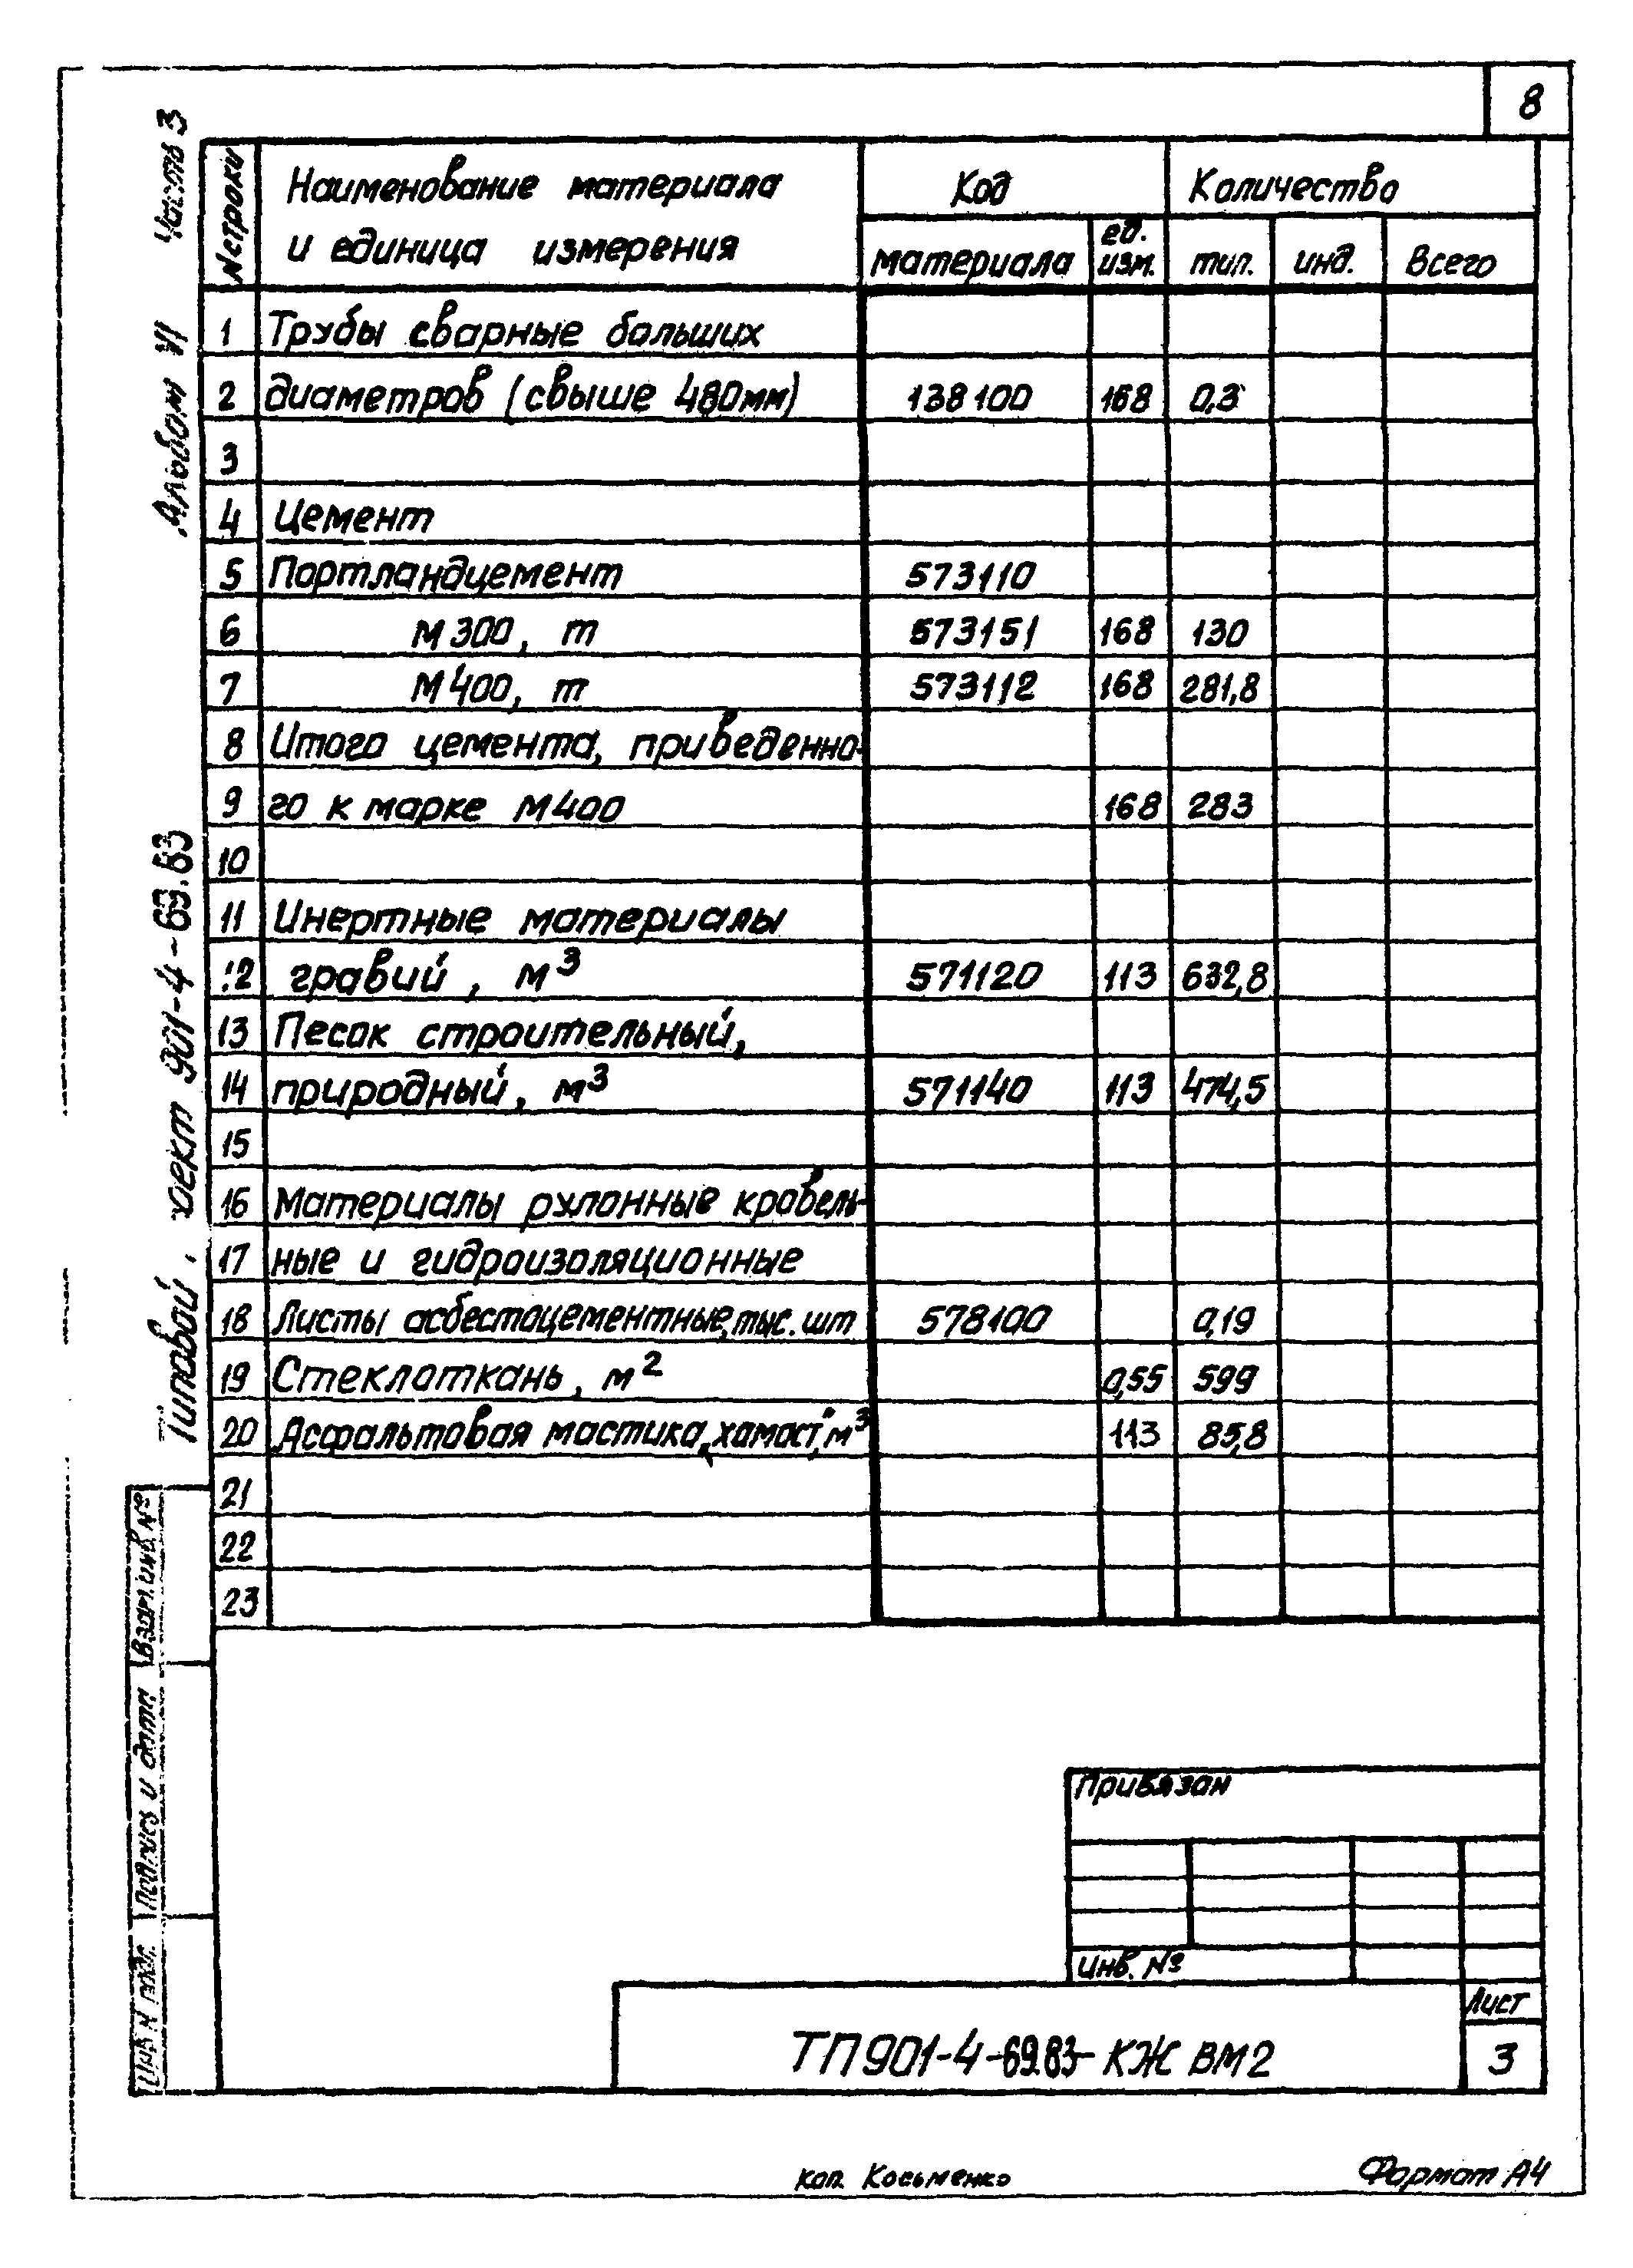 8
Часть 3
Альбом VI
Типовой проект 901-4-69.83
N строки
Наименование материала
и единица измерения
Код
Количество
материала
ед.
изм.
тип.
инд.
Всего
1 Трубы сварные больших
2 диаметров (свыше 480мм) 138100 168 0,3
3
4 Цемент
5 Портландцемент 573110
6 М300, т 573151 168 130
7 М400, т 573112 168 281,8
8 Итого цемента, приведенно-
9 го к марке М400 168 283
10
11 Инертные материалы
12 гравий, м³ 571120 113 632,8
13 Песок строительный,
14 природный, м³ 571140 113 474,5
15
16 Материалы рулонные кровель-
17 ные и гидроизоляционные
18 Листы асбестоцементные, тыс. шт 578100 0,19
19 Стеклоткань, м² 0,55 599
20 Асфальтовая мастика „хамаст", м³ 113 85,8
21
22
23
Взам. инв. №
Подпись и дата
Инв N подл.
Привязан
Инв. №
Лист
ТП 901-4-69.83- КЖ ВМ2
3
коп. Косьменко
Формат А4